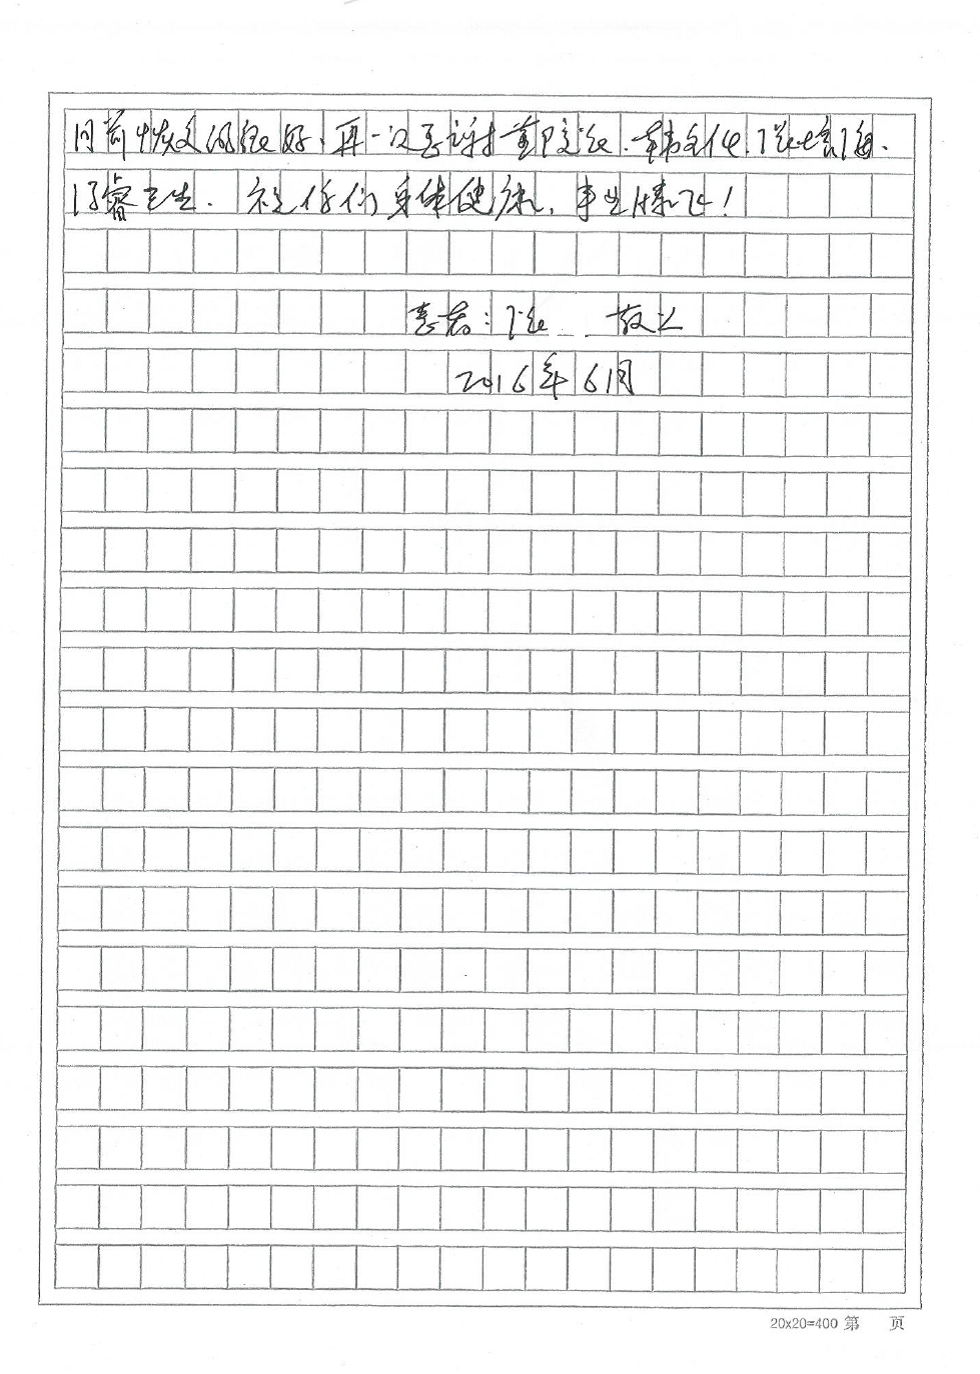 目前恢复的很好,再一次感谢董院长.韩主任.张晓海.
许睿医生. 祝你们身体健康,事业腾飞!
患者:张 敬上
2016年6月
20x20=400 第 页